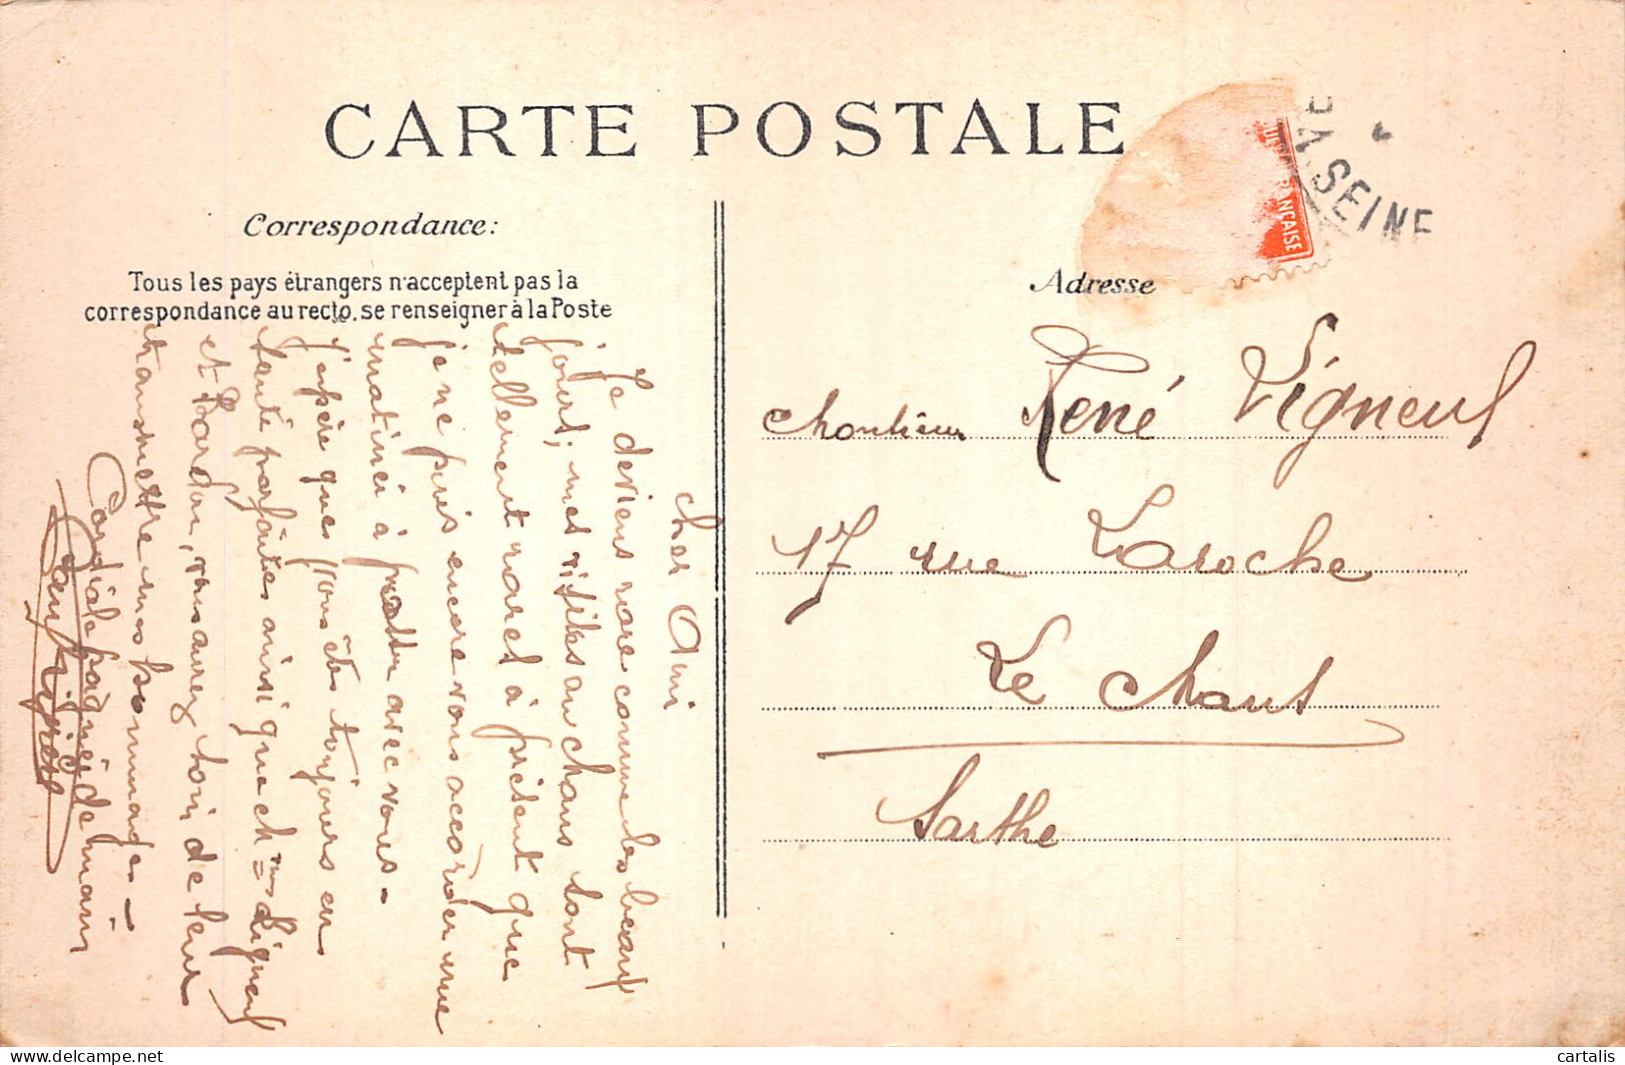 CARTE POSTALE
Correspondance:
Tous les pays étrangers n'acceptent pas la
correspondance au recto, se renseigner à la Poste
Cher Ami
Je deviens rare comme les beaux
jours; mes visites au chaus sont
tellement rares à présent que
je ne puis encore vous accorder une
matinée à passer avec vous.-
J'espère que vous êtes toujours en
santé parfaites ainsi que ch mes Vigneul
et Bardou, vous avez soin de leur
transmettre mes hommages -
Cordiale poignée de main
SEINE
FRANÇAISE
Adresse
Monsieur René Vigneul
17 rue Laroche
Le Chaus
Sarthe
cartalis